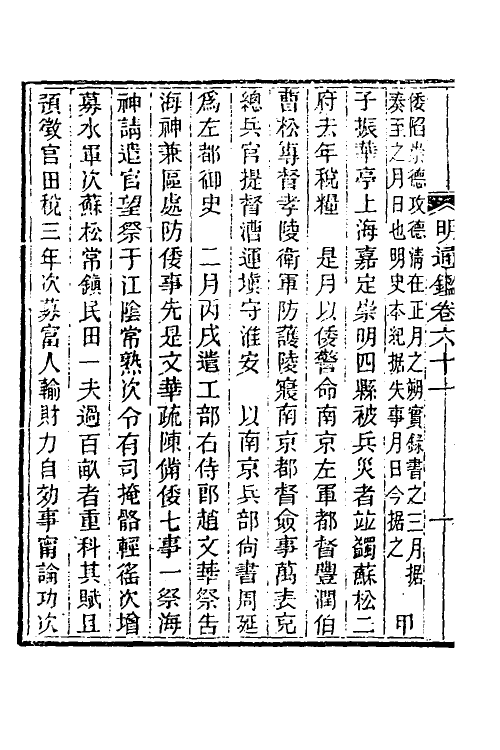 明通鑑卷六十一
倭陷崇德攻德清在正月之朔實録書之三月据
奏至之月日也明史本紀据失事月日今据之
甲
子振華亭上海嘉定崇明四縣被兵災者並蠲蘇松二
府去年税糧　是月以倭警命南京左軍都督豐潤伯
曹松專督孝陵衛軍防護陵寢南京都督僉事萬表充
總兵官提督漕運壖守淮安　以南京兵部尚書周延
爲左都御史　二月丙戌遣工部右侍郎趙文華祭告
海神兼區處防倭事先是文華疏陳備倭七事一祭海
神請遣官望祭于江陰常熟次令有司掩骼輕徭次增
募水軍次蘇松常鎮民田一夫過百畝者重科其賦且
預徵官田税三年次募富人輸財力自効事甯論功次